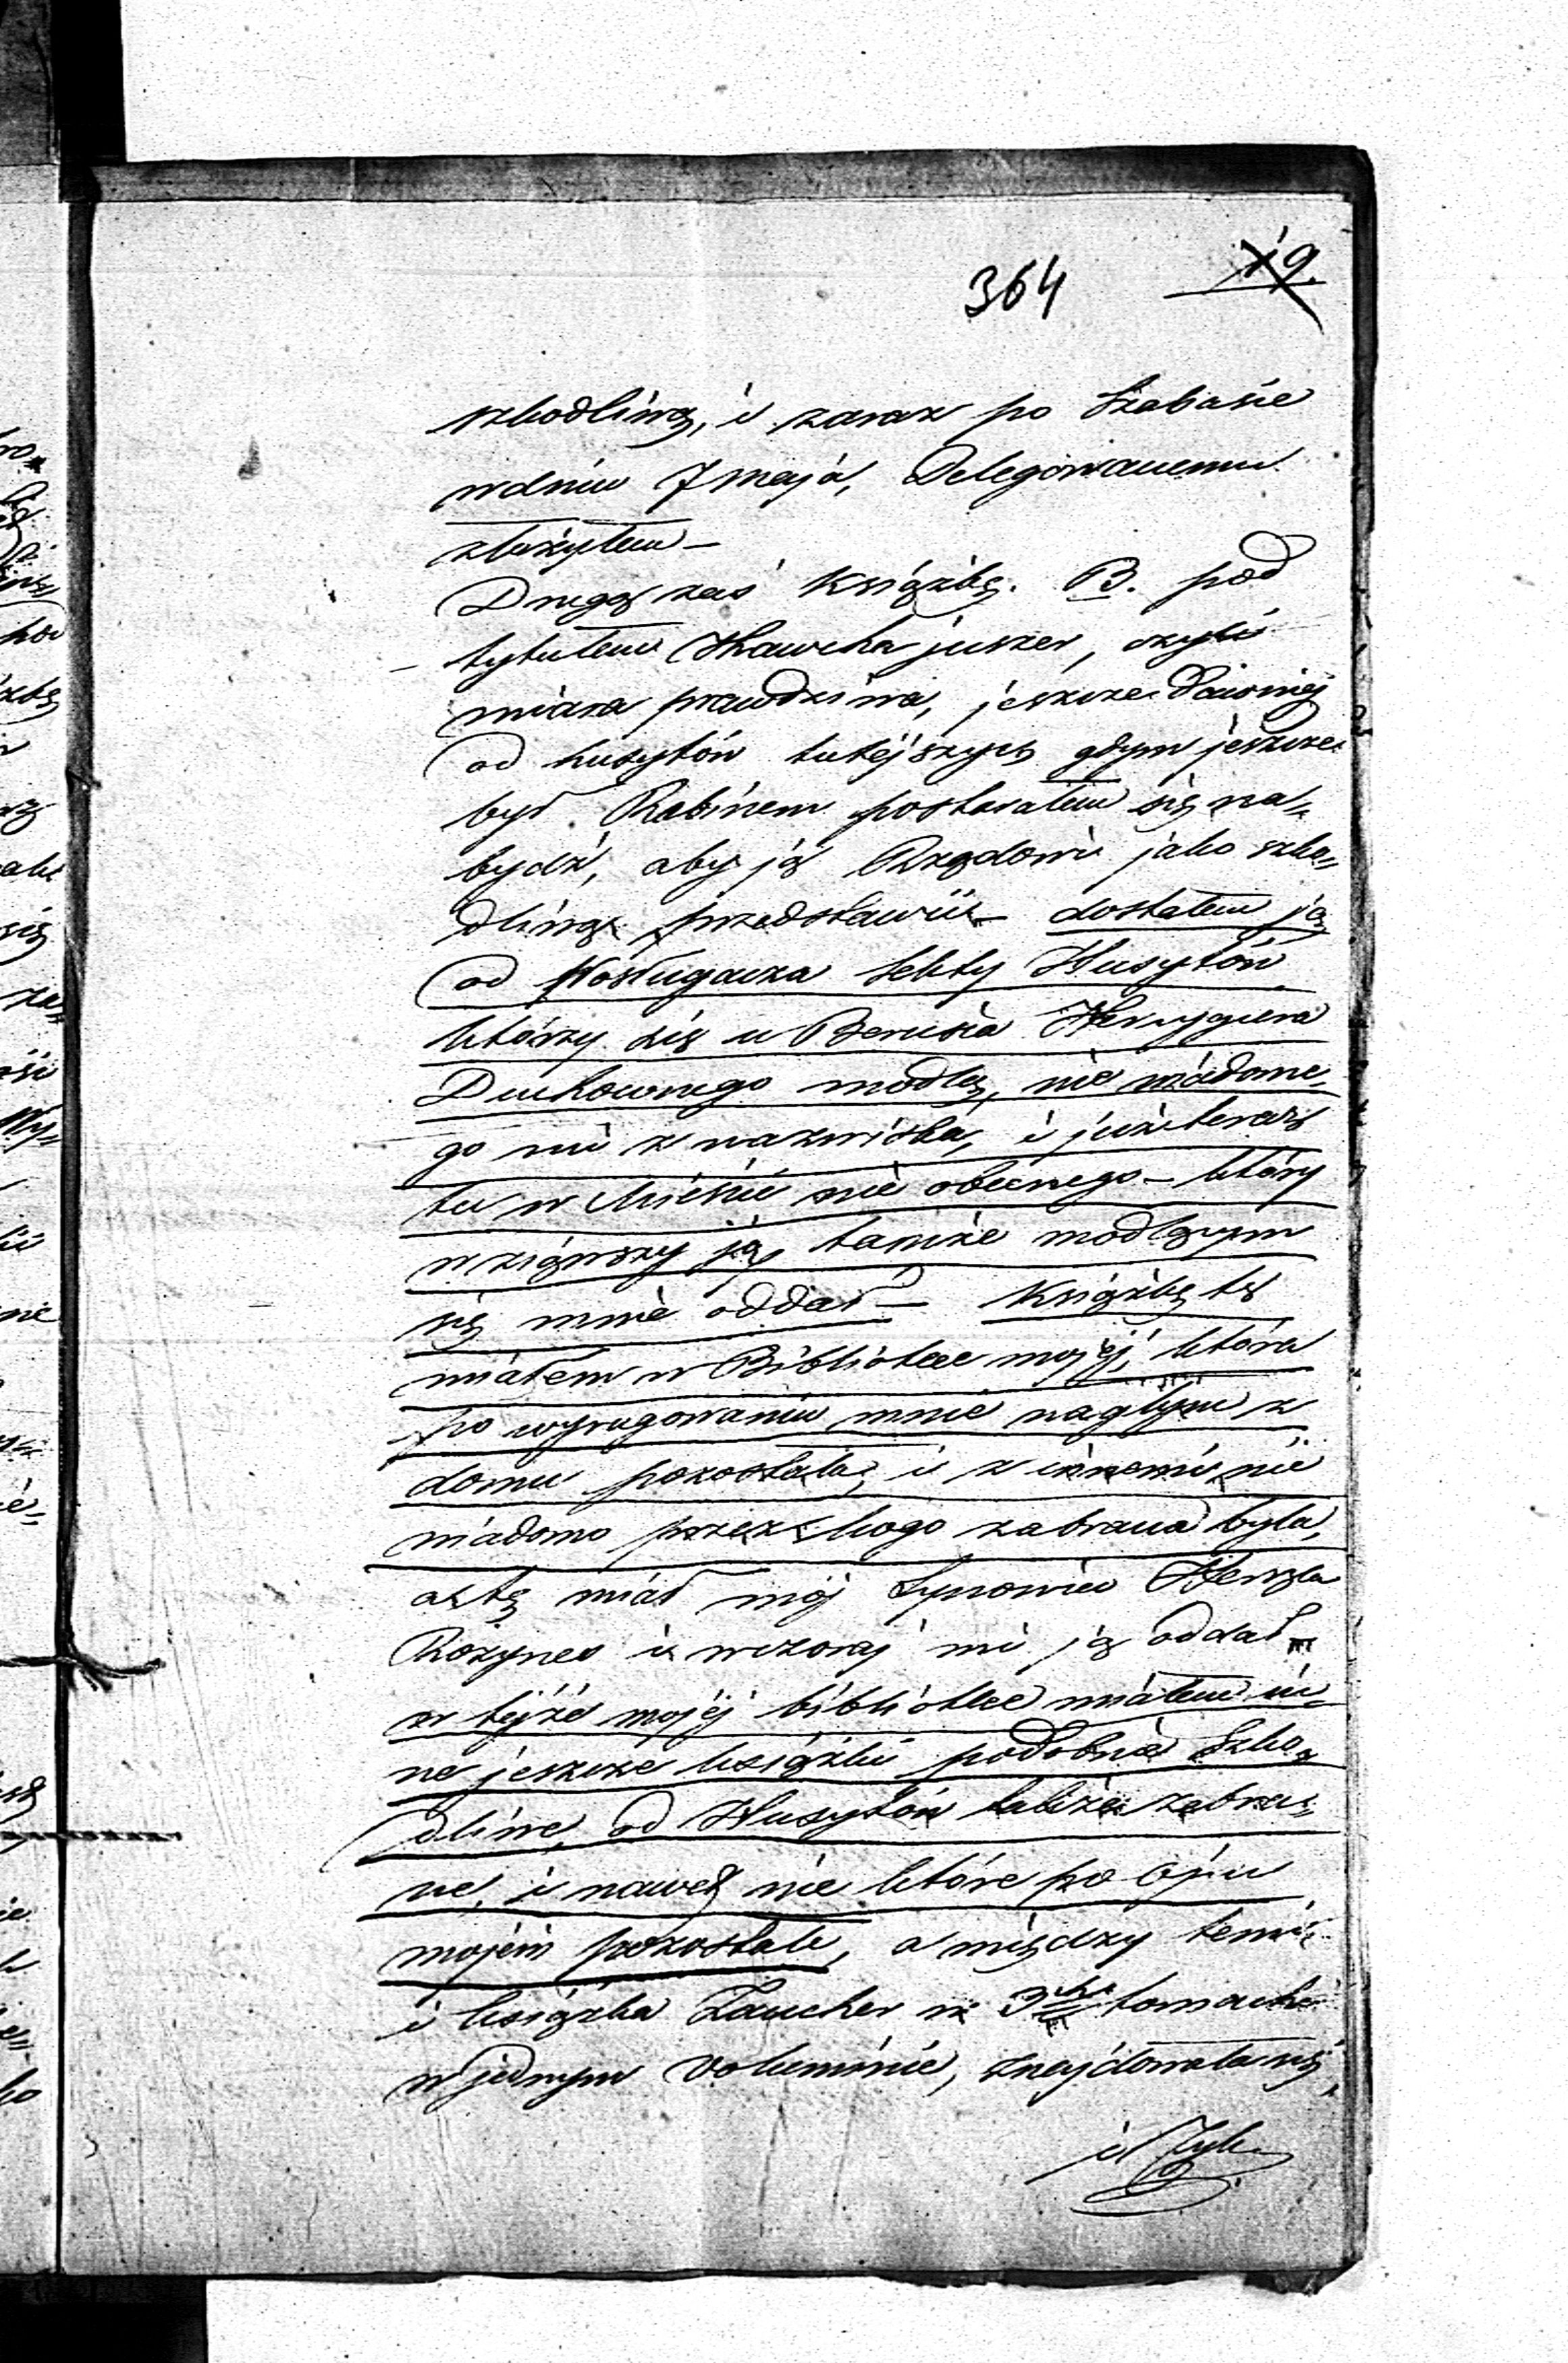 364 19.
szkodliwą, i zaraz po Szabasie
w dniu 7 maja, Delegowanemu
złożyłem —
Drugą zaś Książkę. B. pod
tytułem Hawcha juszer, czyli
miara prawdziwa, jeszcze dawniej
od husytów tutéjszych gdym jeszcze
był Rabinem postarałem się na„
bydź, aby ją Rządowi jako szko„
dliwą przedstawić — dostałem ją
od Posługacza Sekty Husytów
którzy się u Berusia
Duchownego modlą, nie wiadome„
go mi z nazwiska, i już teraz
tu w Mieście nie obecnego — który
wziąwszy ją, tamże modlącym
się mnie oddał — Książkę tę
miałem w Bibliotece mojéj, która
po wyrugowaniu mnie nagłym z
domu pozostała, i z innemi nie
wiadomo przez kogo zabrana była,
a tę miał mój Synowiec Herszla
Rozynes i wczoraj mi ją oddał —
w téjże mojéj bibliotece miałem in„
ne jeszcze książki podobnie szko„
dliwe, od Husytów także zabra„
ne, i nawet nie które po Ojcu
mojém pozostałe, a między temi
i książka Zaucher w 3ch tomach
w jednym voluminie, znajdowała się,
i Tyle